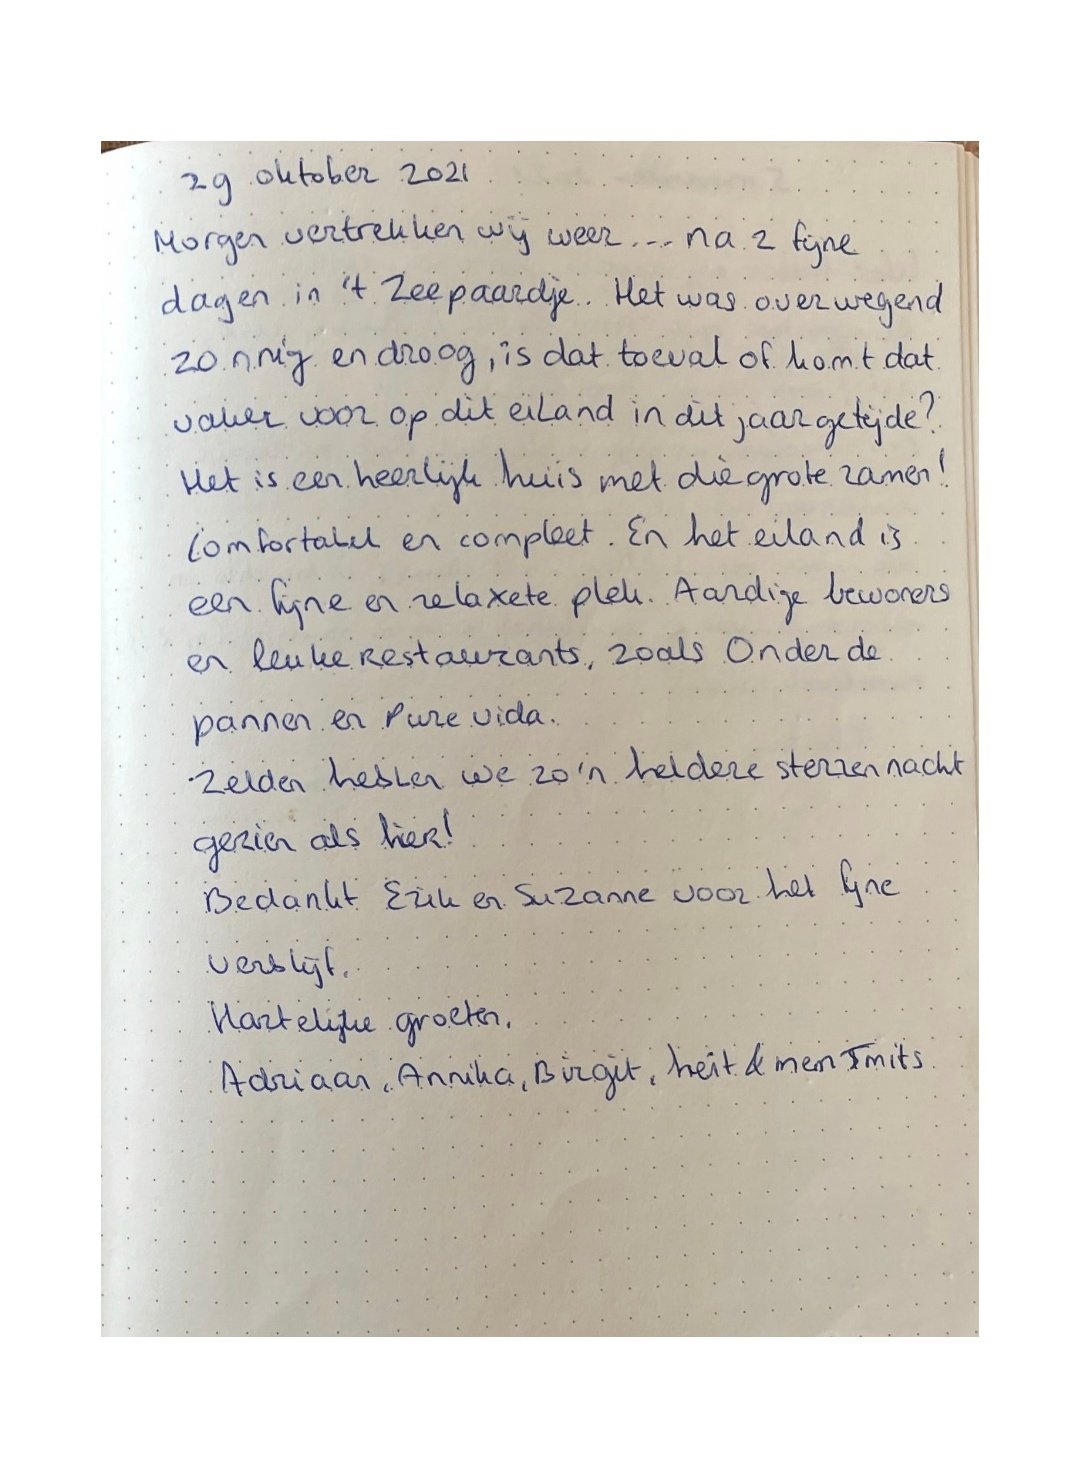 29 oktober 2021
Morgen vertrekken wij weer... na 2 fijne
dagen in 't Zeepaardje. Het was overwegend
zonnig en droog, is dat toeval of komt dat
vaker voor op dit eiland in dit jaargetijde?
Het is een heerlijk huis met die grote ramen!
Comfortabel en compleet. En het eiland is
een fijne en relaxete plek. Aardige bewoners
en leuke restaurants, zoals Onder de
pannen en Pure vida.
Zelden hebben we zo'n heldere sterrennacht
gezien als hier!
Bedankt Erik en Suzanne voor het fijne
verblijf.
Hartelijke groeten,
Adriaan, Annika, Birgit, heit & mem